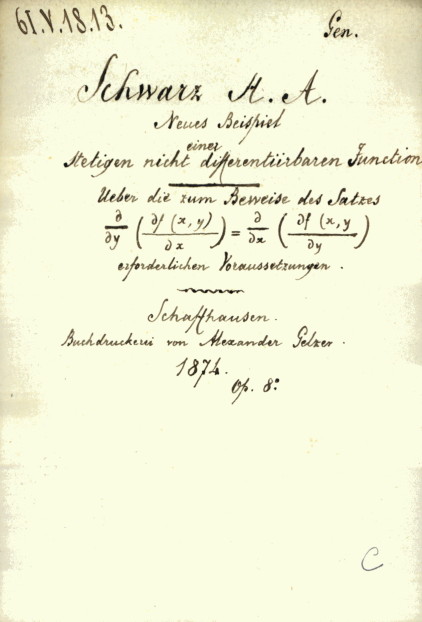 61.V.18.13.
Gen.
Schwarz H. A.
Neues Beispiel
einer
stetigen nicht differentiirbaren Function
Ueber die zum Beweise des Satzes
∂/∂y (∂f (x, y)/∂x) = ∂/∂x (∂f (x, y/∂y)
erforderlichen Voraussetzungen.
Schaffhausen.
Buchdruckerei von Alexander Gelzer.
1874.
Op. 8:
C